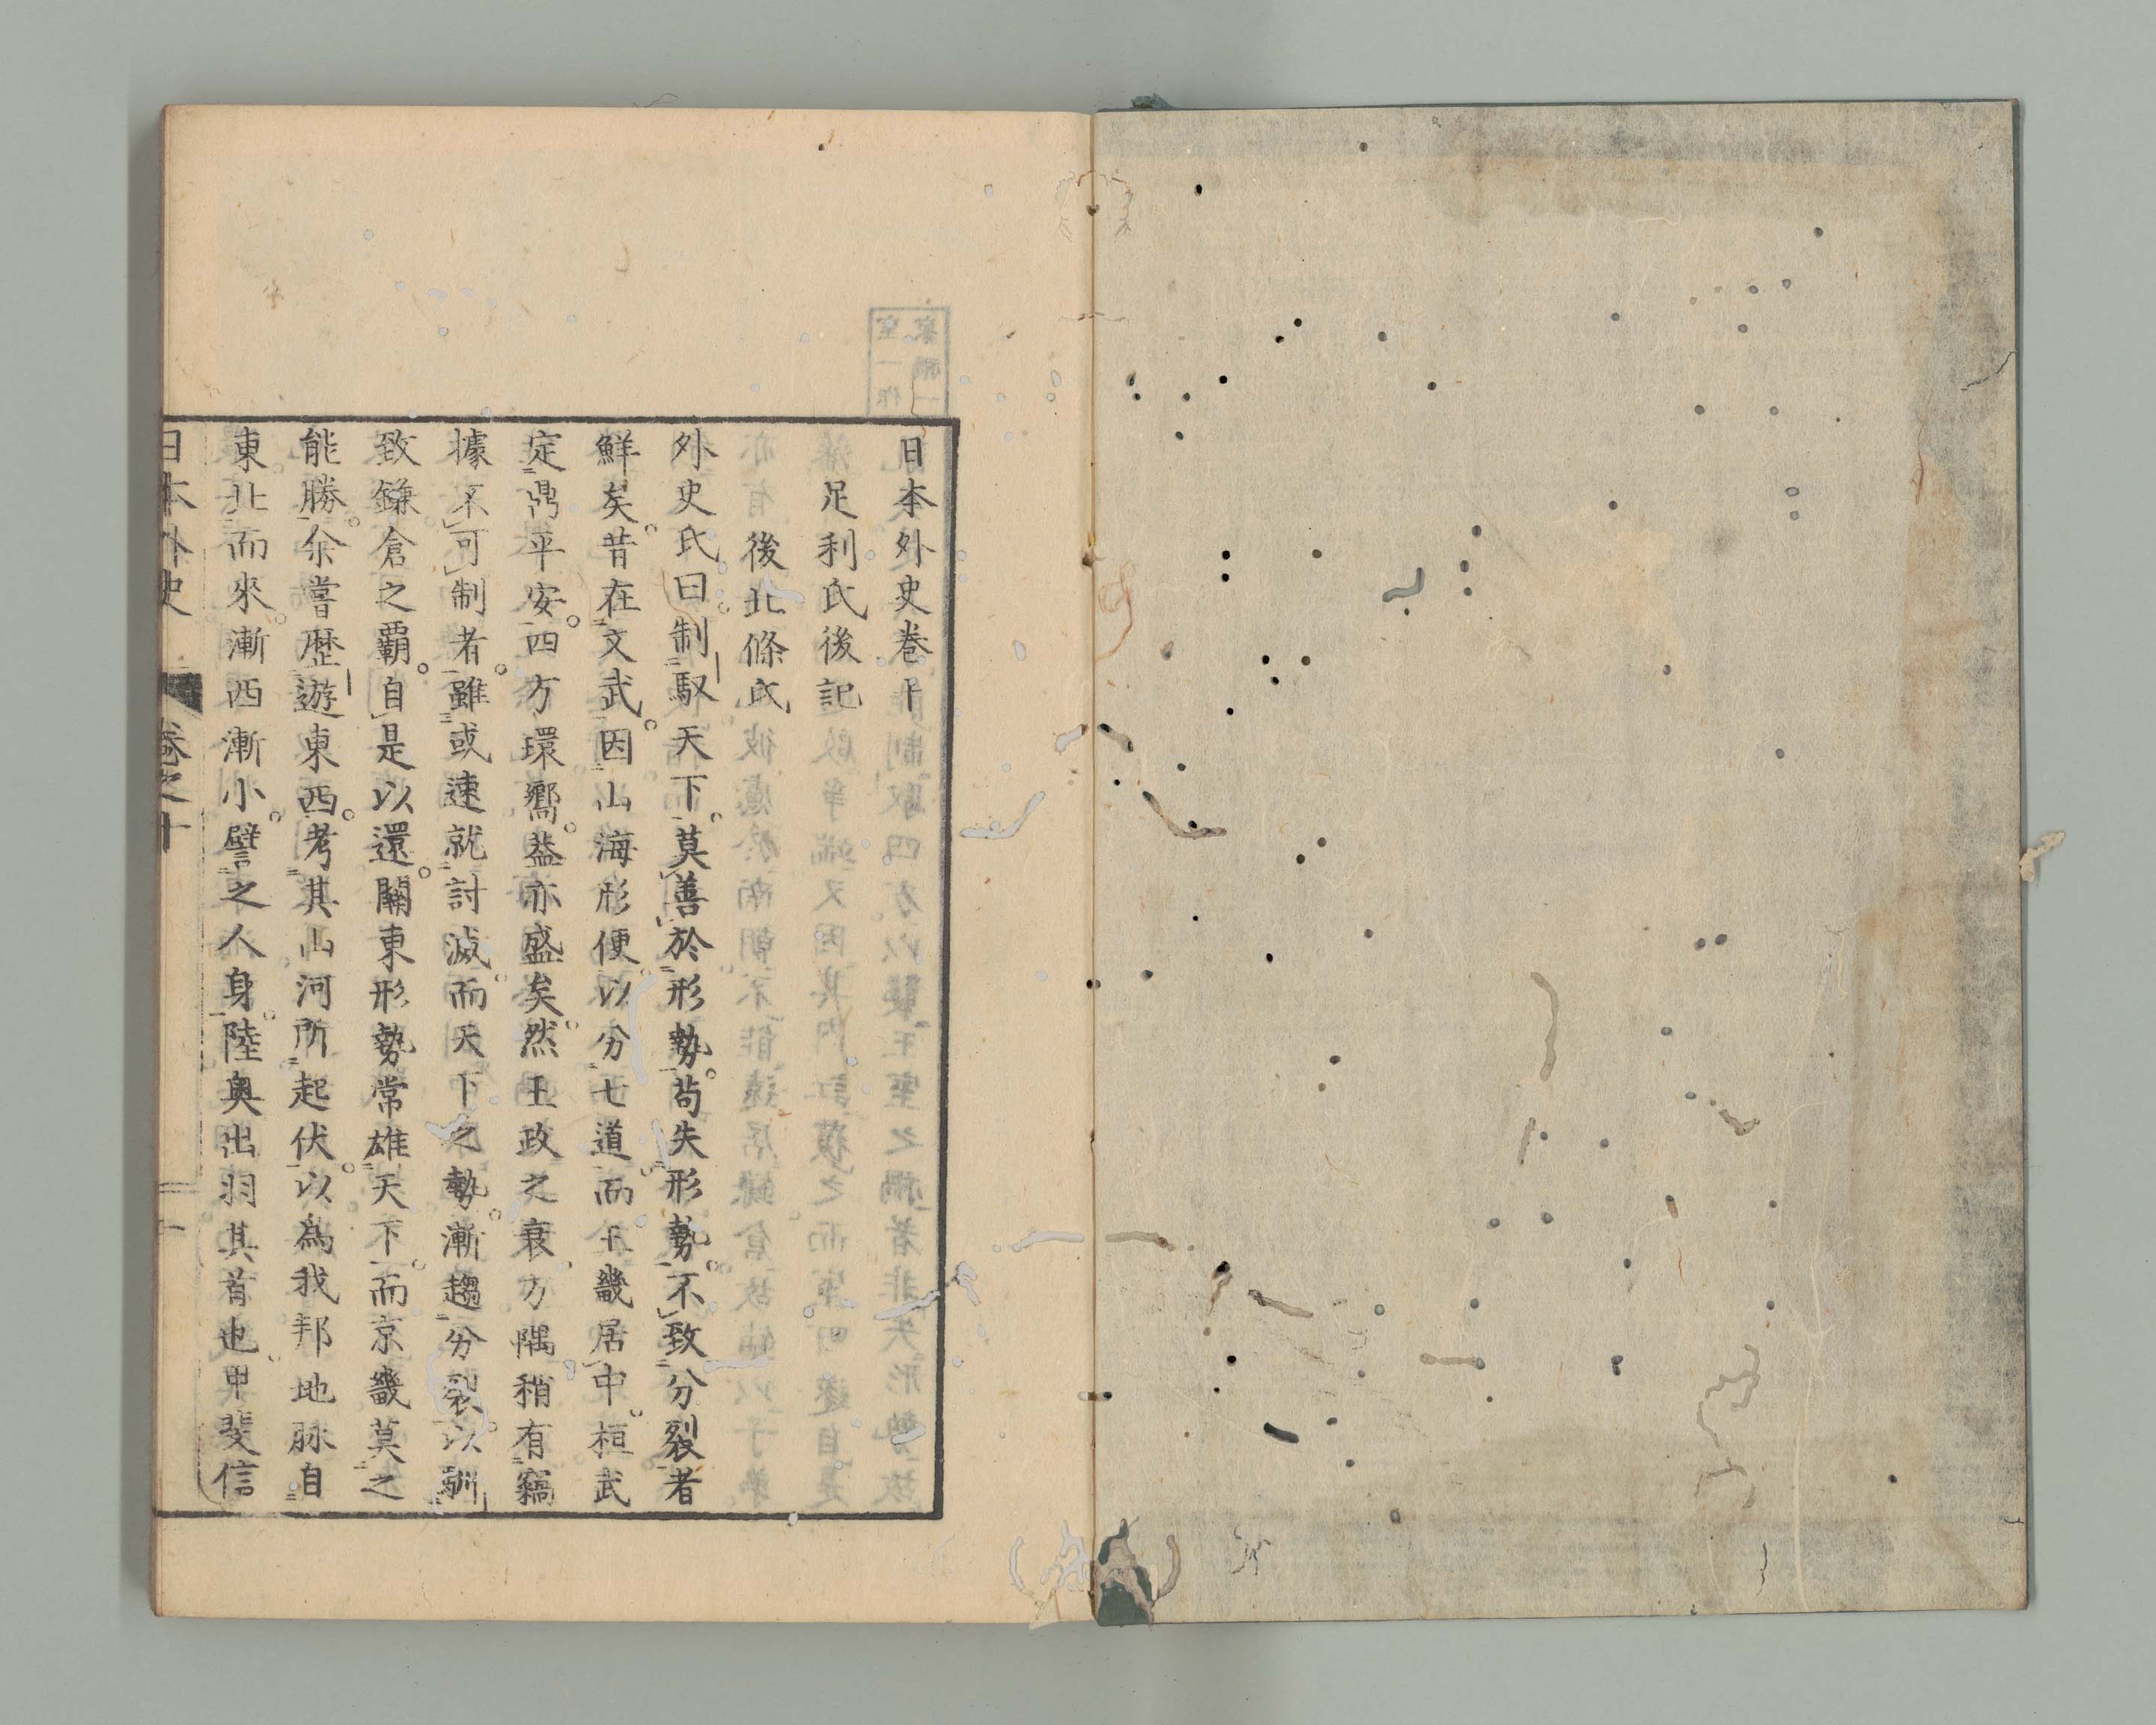 日本外史巻十
足利氏後記
後北條氏
外史氏曰制馭天下。莫善於形勢。苟失形勢。不致分裂者
鮮矣。昔在文武。因山海形便。以分七道。而王畿居中。桓武
定鼎平安。四方環嚮。葢亦盛矣。然王政之衰。方隅稍有竊
據不可制者。雖或速就討滅。而天下之勢。漸趨分裂。以馴
致鎌倉之覇。自是以還。關東形勢常雄天下。而京畿莫之
能勝。余嘗歴遊東西。考其山河所起伏。以為我邦地脉自
東北而來。漸西漸小。譬之人身。陸奥出羽其首也。甲斐信
日本外史 卷之十